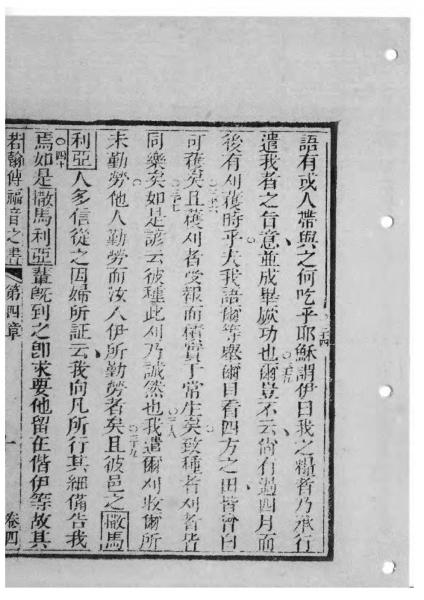 語有或人帶與之何吃乎耶穌謂伊曰我之糧者乃承行
三四
遣我者之旨意並成畢厥功也爾豈不云尚有過四月而
三五
後有刈穫時乎夫我語爾等舉爾目看四方之田皆曾白
可穫矣且穫刈者受報而積實于常生矣致種者刈者皆
三六
同樂矣如是諺云彼種此刈乃誠然也我遣爾刈收爾所
三七
三八
未勤勞他人勤勞而汝入伊所勤勞者矣且彼邑之撒馬
三九
利亞人多信從之因婦所証云我向凡所行其細備告我
四十
焉如是撒馬利亞輩既到之即求要他留在偕伊等故其
若翰傳福音之書
第四章
卷四